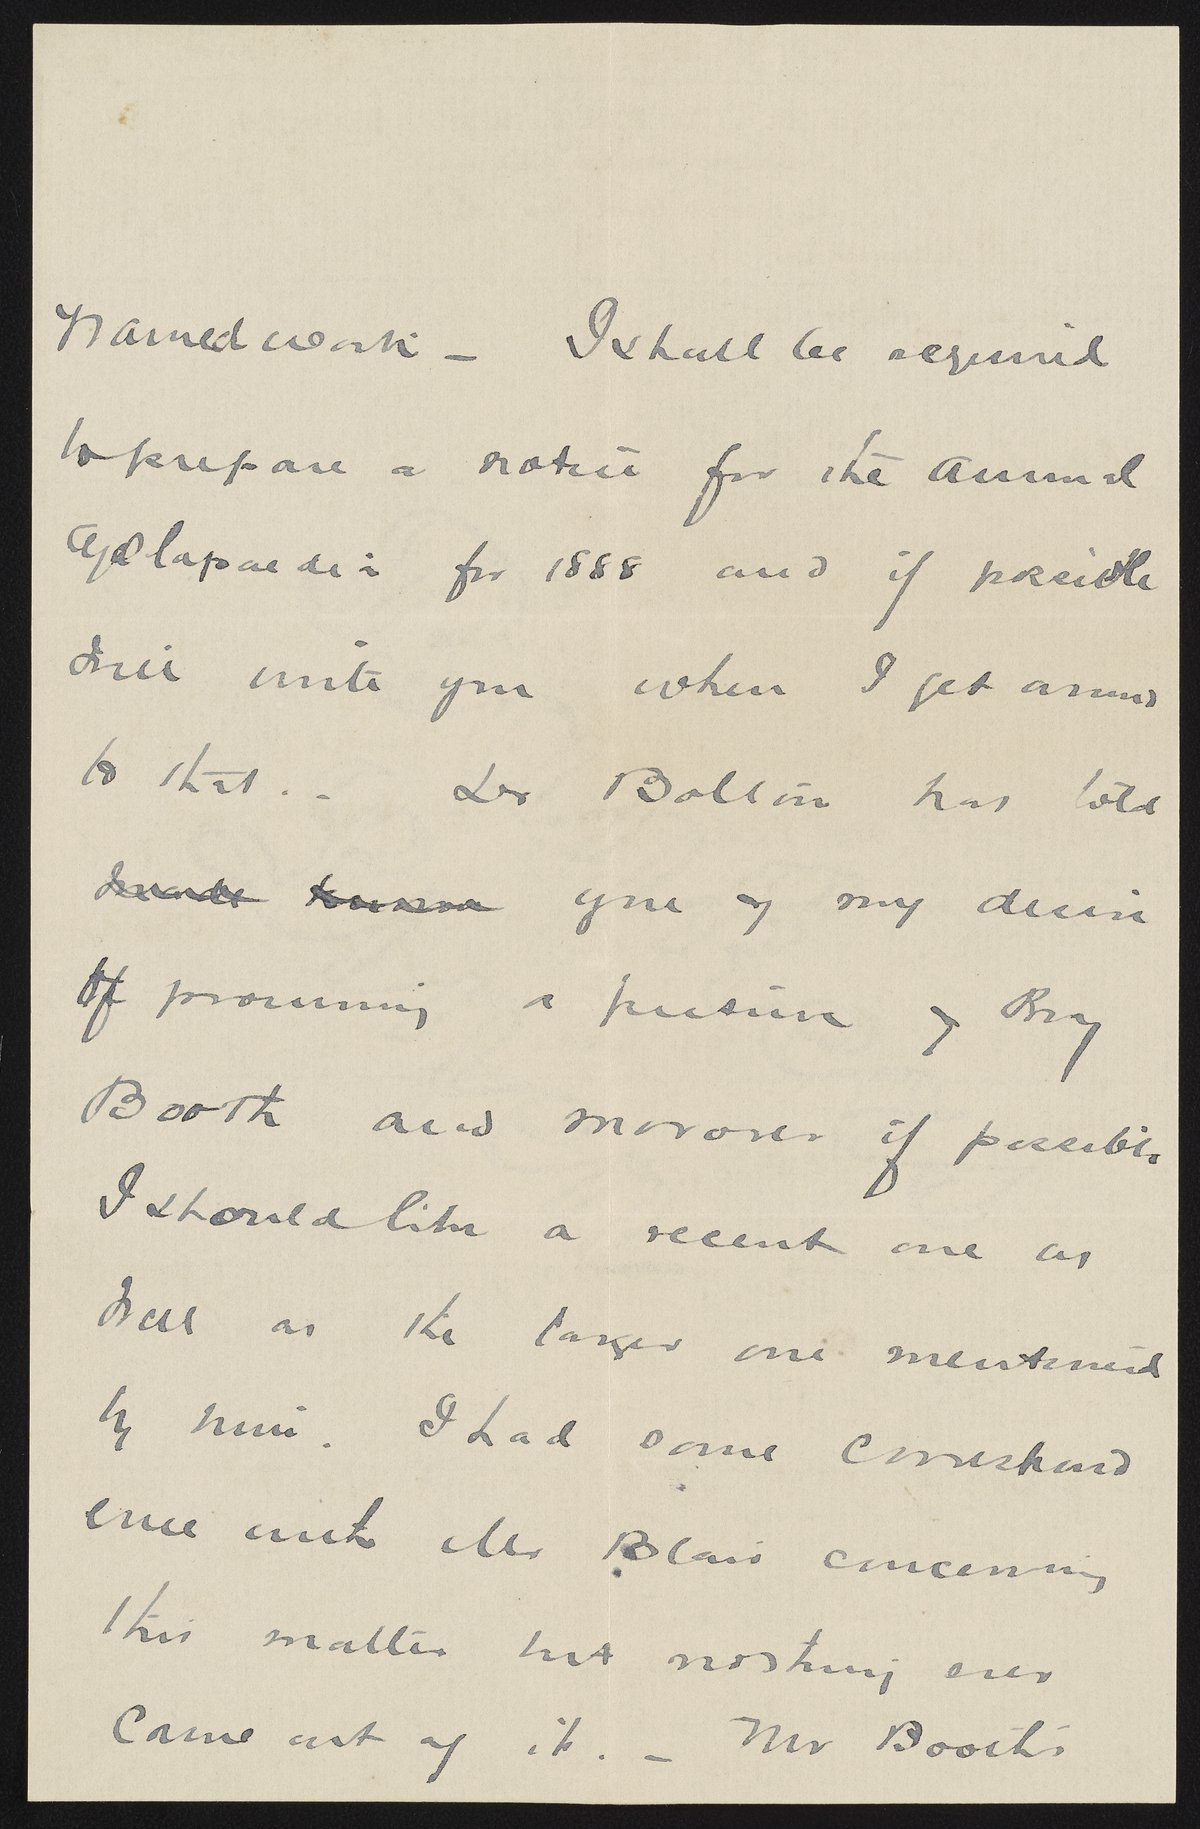 named work – I shall be required
to prepare a notice for the Annual
Cyclopaedia for 1888 and if possible
will write you when I get around
to that. – Dr Bolton has told
you of my desire
of procuring a picture of Prof
Booth and morover if possible
I should like a recent one as
well as the larger one mentioned
by him. I had some correspond
ence with Mr Blair concerning
this matter but nothing ever
came out of it. – Mr Booth's